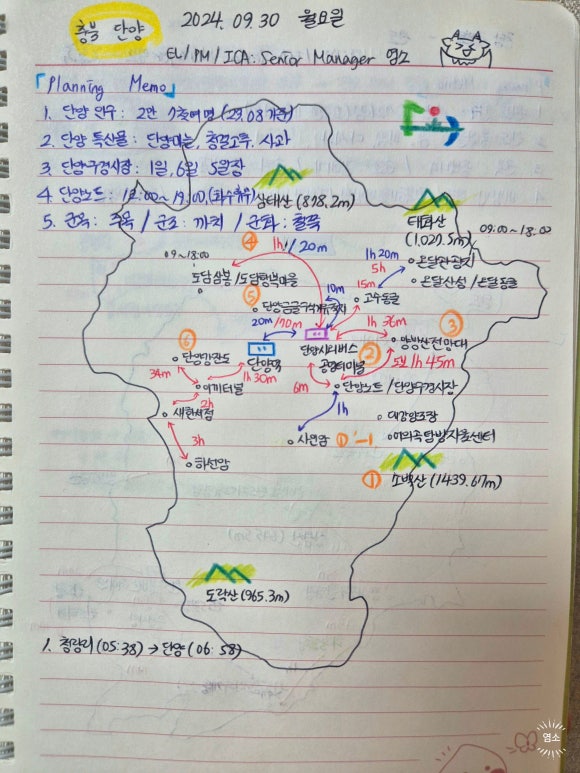 충북 단양
2024. 09. 30 월요일
EL/PM/ICA. Senior Manager 염소
「Planning Memo」
1. 단양 인구 : 2만 7천여명 (24.08 기준)
2. 단양 특산물 : 단양마늘, 청결고추, 사과
3. 단양구경시장 : 1일, 6일 5일장
4. 단양노트 : 12:00~19:00, (화수휴무)
5. 군목 : 주목 / 군조 : 까치 / 군화 : 철쭉
삼태산 (878.2m)
태화산
(1,027.5m)
09:00~18:00
④ 1h / 20m
09~18:00
도담삼봉 / 도담행복마을
1h 20m
5h
온달관광지
온달산성 / 온달동굴
10m
15m
고수동굴
⑤
20m/70m
1h 36m
③
양방산전망대
⑥
단양잔도
단양역
단양시외버스
공영터미널
②
도보 1h 45m
34m
1h 30m
이끼터널
6m
단양노트 / 단양구경시장
2h
새한서점
1h
대강양조장
3h
사인암 ①-1
여의곡탐방지원센터
하선암
①
소백산 (1439.67m)
도락산 (965.3m)
1. 청량리 (05:38) → 단양 (06:58)
염소